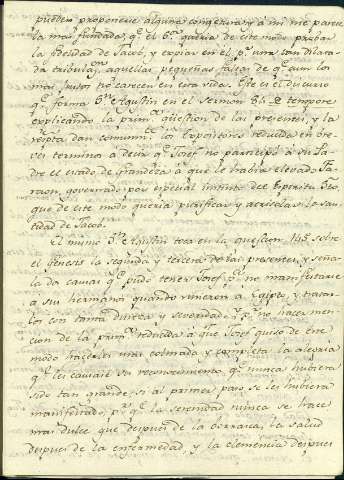 pueden proponerse alguna congetura, y a mi me parece
la mas fundada, qe el Sr queria de este modo probar
la fidelidad de Jacob, y expiar en el pr una tan dilata-
da tribulacn aquellas pequeñas faltas de qe aun los
mas justos no carecen en esta vida. Este es el discurso
qe forma Sn Agustin en el Sermon 82 de tempore
explicando la primra question de las presentes, y la
acepta dan comunmte los Expositores reducida en bre-
ves terminos a decir qe Josef no participó a su Pa-
dre el estado de grandeza à que le habia elevado Fa-
raon, governado por especial instinto del Espiritu Sto,
que de este modo queria purificar y acrisolar la san-
tidad de Jacob.
El mismo Sn Agustin toca en la question 145 sobre
el Genesis la segunda y tercera de las presentes, y seña-
la da causas qe pudo tener Josef pa no manifestarse
a sus hermanos quando vinieron a Egipto, y tratar-
los con tanta dureza y severidad
cion de la primra reducida à que Josef quiso de este
modo hacerles mas colmada y completa la alegria
qe les causase su reconocimiento, qe nunca hubiera
sido tan grande, si al primer paso se les hubiera
manifestado, pr qe la serenidad nunca se hace
mas dulce que despues de la borrasca, la salud
despues de la enfermedad, y la clemencia despues